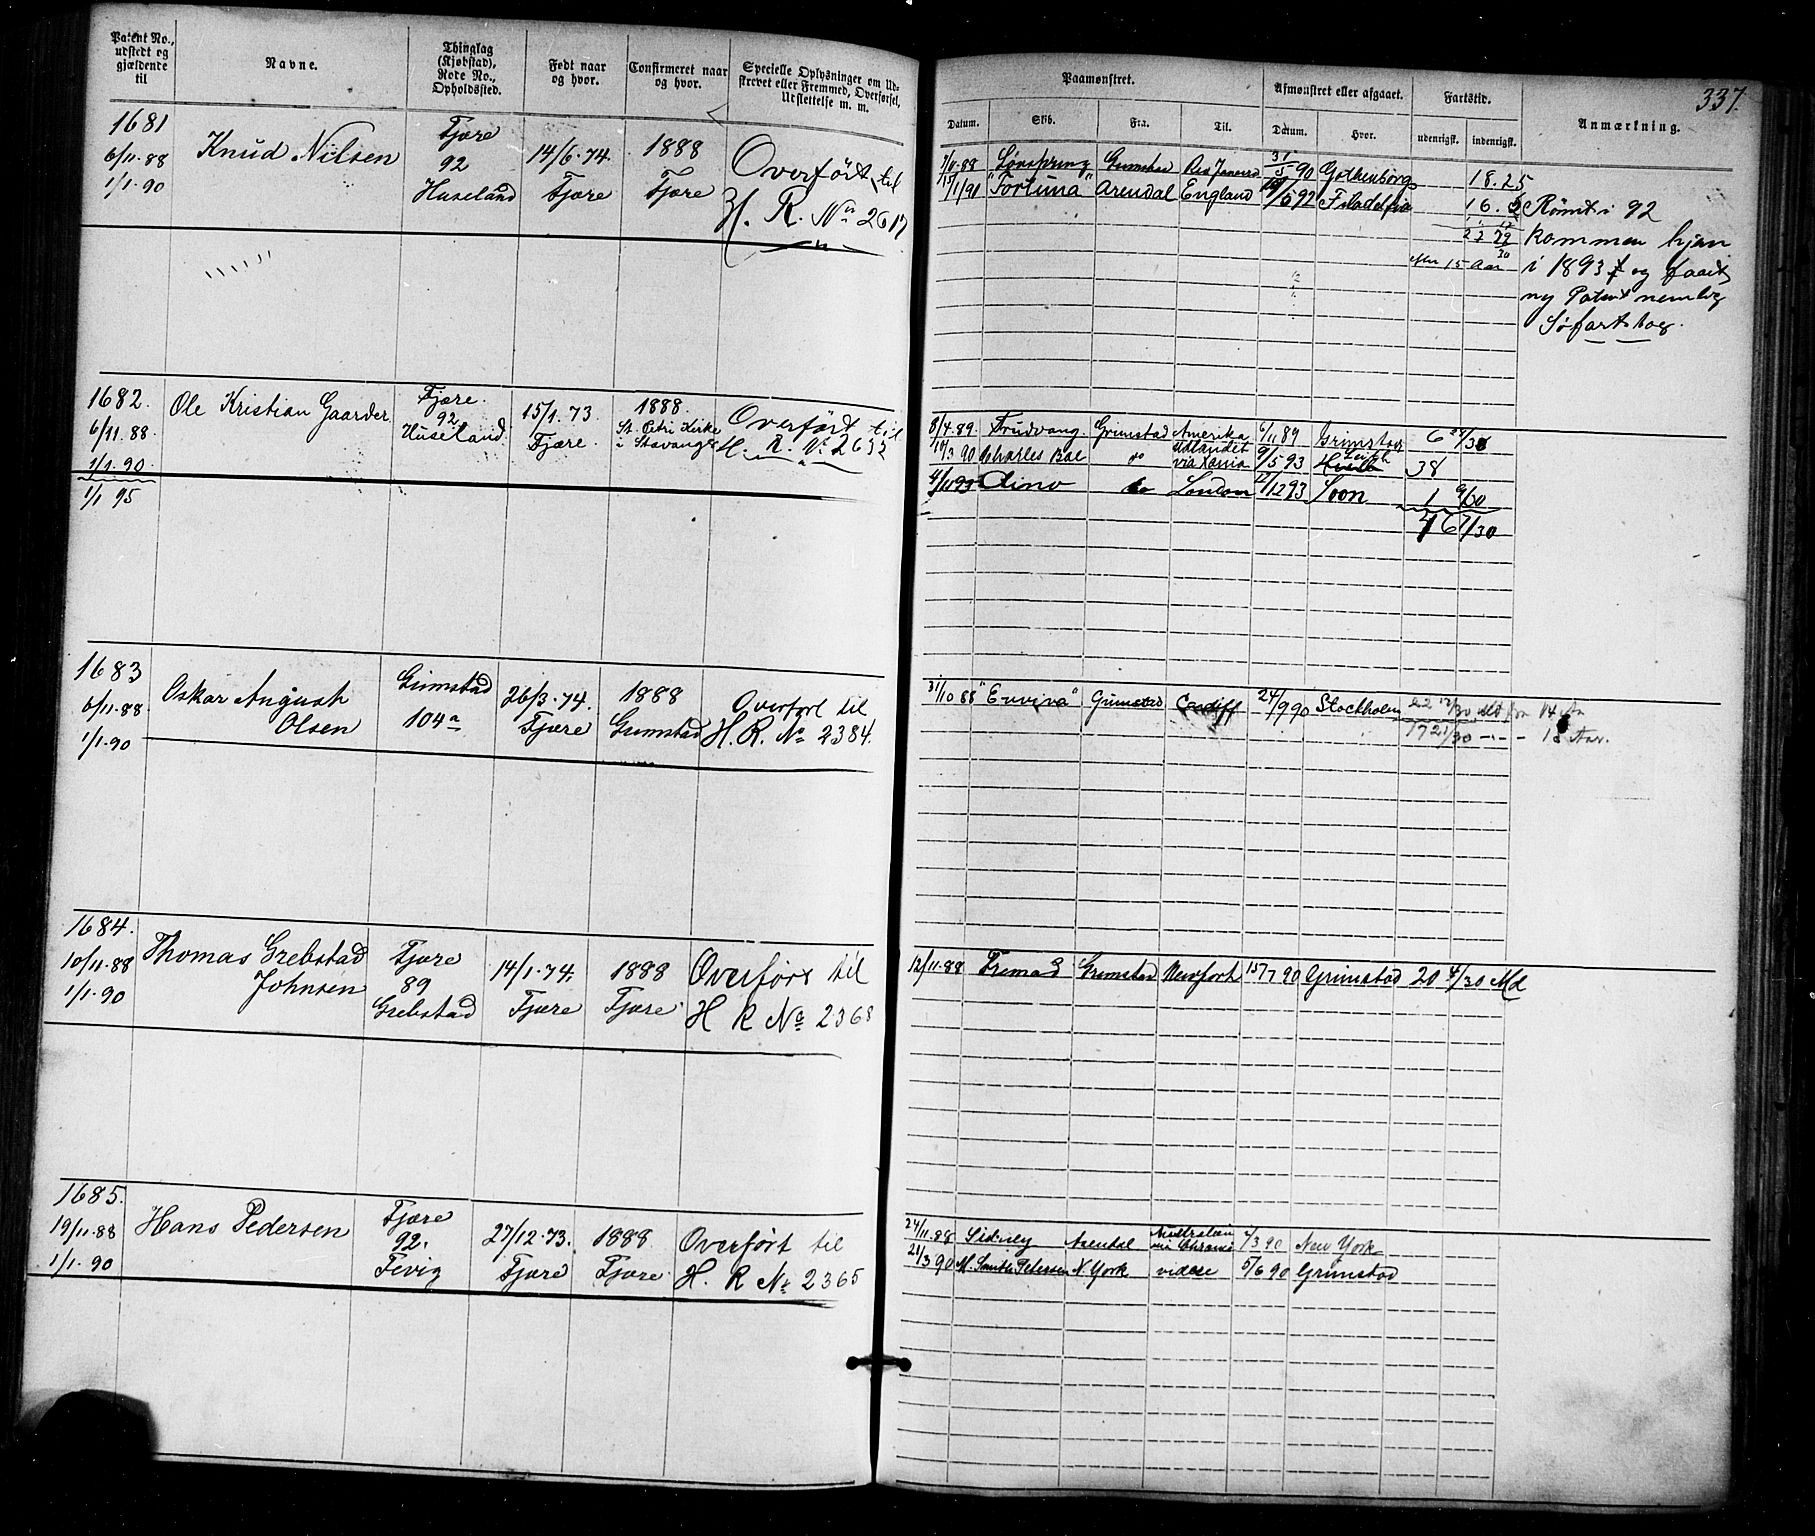 Patent No., udstedt og gjældende til
Navne.
Thinglag (Kjøbstad), Rode No., Opholdssted.
Født naar og hvor.
Confirmeret naar og hvor.
Specielle Oplysninger om Udskrevet eller Fremmed, Overførsel, Udslettelse m. m.
Paamønstret.
Afmønstret eller afgaaet.
Fartstid.
Anmærkning.
337.
Datum. Skib. Fra. Til. Datum. Hvor. udenrigst. indenrigst.
1681
6/11.88
1/1.90
Knud Nilsen
Fjære
92
Huseland
14/6.74.
Fjære
1888
Fjære
Overført til
H. R. No 2617
7/11.88 Lønspring Grimstad Rio Janeiro 31/5 90 Gothenborg 18.25
15/1/91 "Fortuna" Arendal England /5 92 Filadelfia 16.
efter 15 Aar
Rømt i 92
kommen hjem
i 1893 og faaet
ny Patent nemlig
Søfartsbog.
1682.
6/11.88.
1/1.90.
1/1 95
Ole Kristian Gaarder
Fjære.
92
Huseland.
15/1.73
Fjære.
1888.
St. Petri Kirke
i Stavanger
Overført til
H. R. No 2632
8/4.89. Trudvang. Grimstad Amerika 6/11 89 Grimstad 6 27/30
10/3 90 Charles Bal do Udlandet via Xania 9/5 93 Leith 38
4/11 93 Dino do London 12/12 93 Soon 1 9/30
46 7/30
1683
6/11.88.
1/1.90
Oskar August
Olsen
Grimstad
104a
26/3.74.
Fjære
1888
Grimstad
Overført til
H. R. No 2384.
31/10 88 "Evviva" Grimstad Cardiff 24/9 90 Stockholm 22 /30 Md fra 14 Aar
17 21/30 -"- - 15 Aar.
1684.
10/11.88
1/1.90
Thomas Grebstad
Johnsen
Fjære
89
Grebstad
14/1.74.
Fjære
1888
Fjære.
Overførs til
H R No 2368
12/11.88 Fremad Grimstad Newport 15/7 90 Grimstad 20 4/30 Md
1685.
19/11.88
1/1.90
Hans Pedersen
Fjære
92.
Fevig
27/12.73.
Fjære
1888
Fjære.
Overført til
H. R No 2365
24/11.88 Sidney Arendal Australien via Chrania /3 90 New York
21/3 90 M. Smith Petersen N. York videre 5/6 90 Grimstad